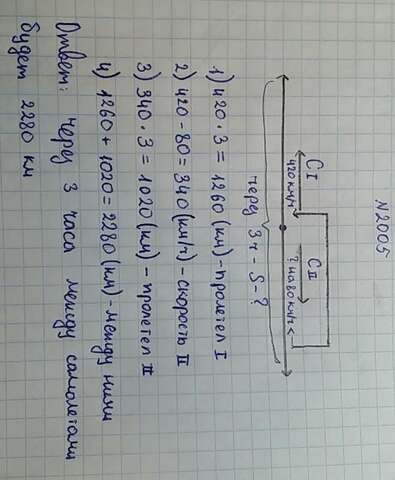 N2005
C I
C II
420 км/ч
? на 80 км/ч <
через 3 ч - S - ?
1) 420 · 3 = 1260 (км) - пролетел I
2) 420 - 80 = 340 (км/ч) - скорость II
3) 340 · 3 = 1020 (км) - пролетел II
4) 1260 + 1020 = 2280 (км) - между ними
Ответ: через 3 часа между самолетами
будет 2280 км